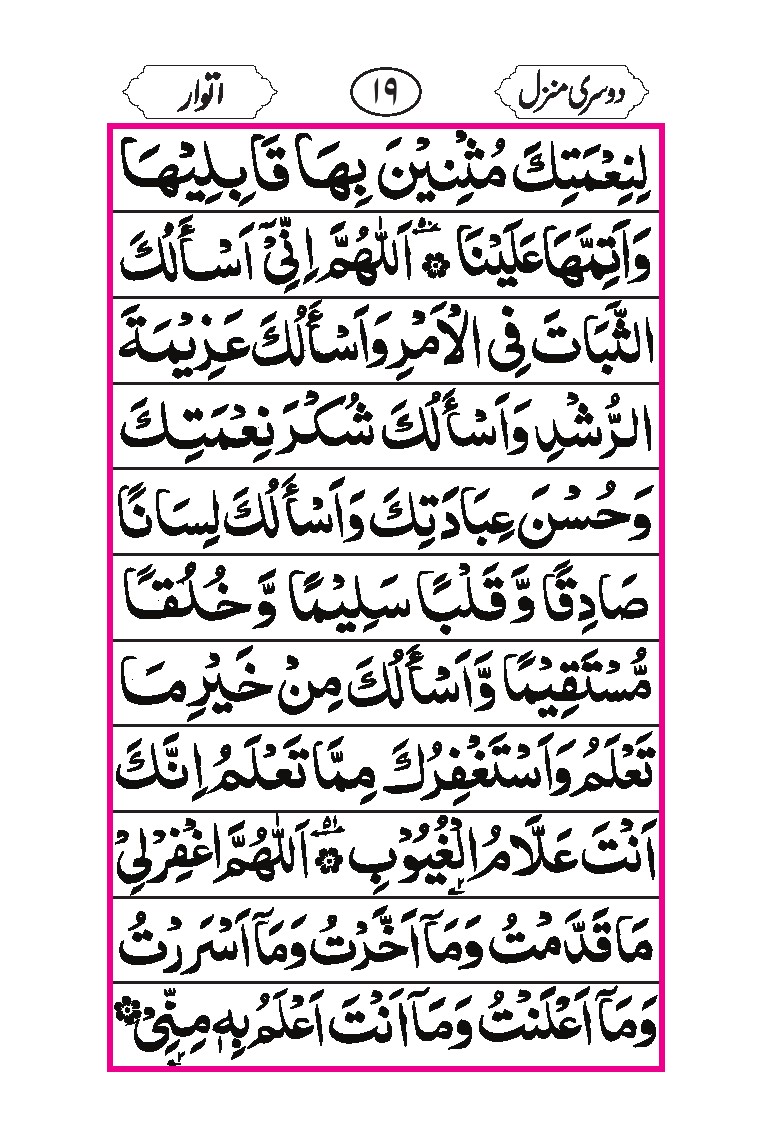 دوسری منزل ۱۹ اتوار
لِنِعْمَتِكَ مُثْنِيْنَ بِهَا قَابِلِيْهَا
وَاَتِمَّهَا عَلَيْنَا ۞ؔ۵۰ اَللّٰهُمَّ اِنِّيْٓ اَسْأَلُكَ
الثَّبَاتَ فِي الْاَمْرِ وَاَسْأَلُكَ عَزِيْمَةَ
الرُّشْدِ وَاَسْأَلُكَ شُكْرَ نِعْمَتِكَ
وَحُسْنَ عِبَادَتِكَ وَاَسْأَلُكَ لِسَانًا
صَادِقًا وَّقَلْبًا سَلِيْمًا وَّخُلُقًا
مُّسْتَقِيْمًا وَّاَسْأَلُكَ مِنْ خَيْرِ مَا
تَعْلَمُ وَاَسْتَغْفِرُكَ مِمَّا تَعْلَمُ اِنَّكَ
اَنْتَ عَلَّامُ الْغُيُوْبِ ۞۵۱ اَللّٰهُمَّ اغْفِرْ لِيْ
مَا قَدَّمْتُ وَمَآ اَخَّرْتُ وَمَآ اَسْرَرْتُ
وَمَآ اَعْلَنْتُ وَمَآ اَنْتَ اَعْلَمُ بِهٖ مِنِّيْ ۞